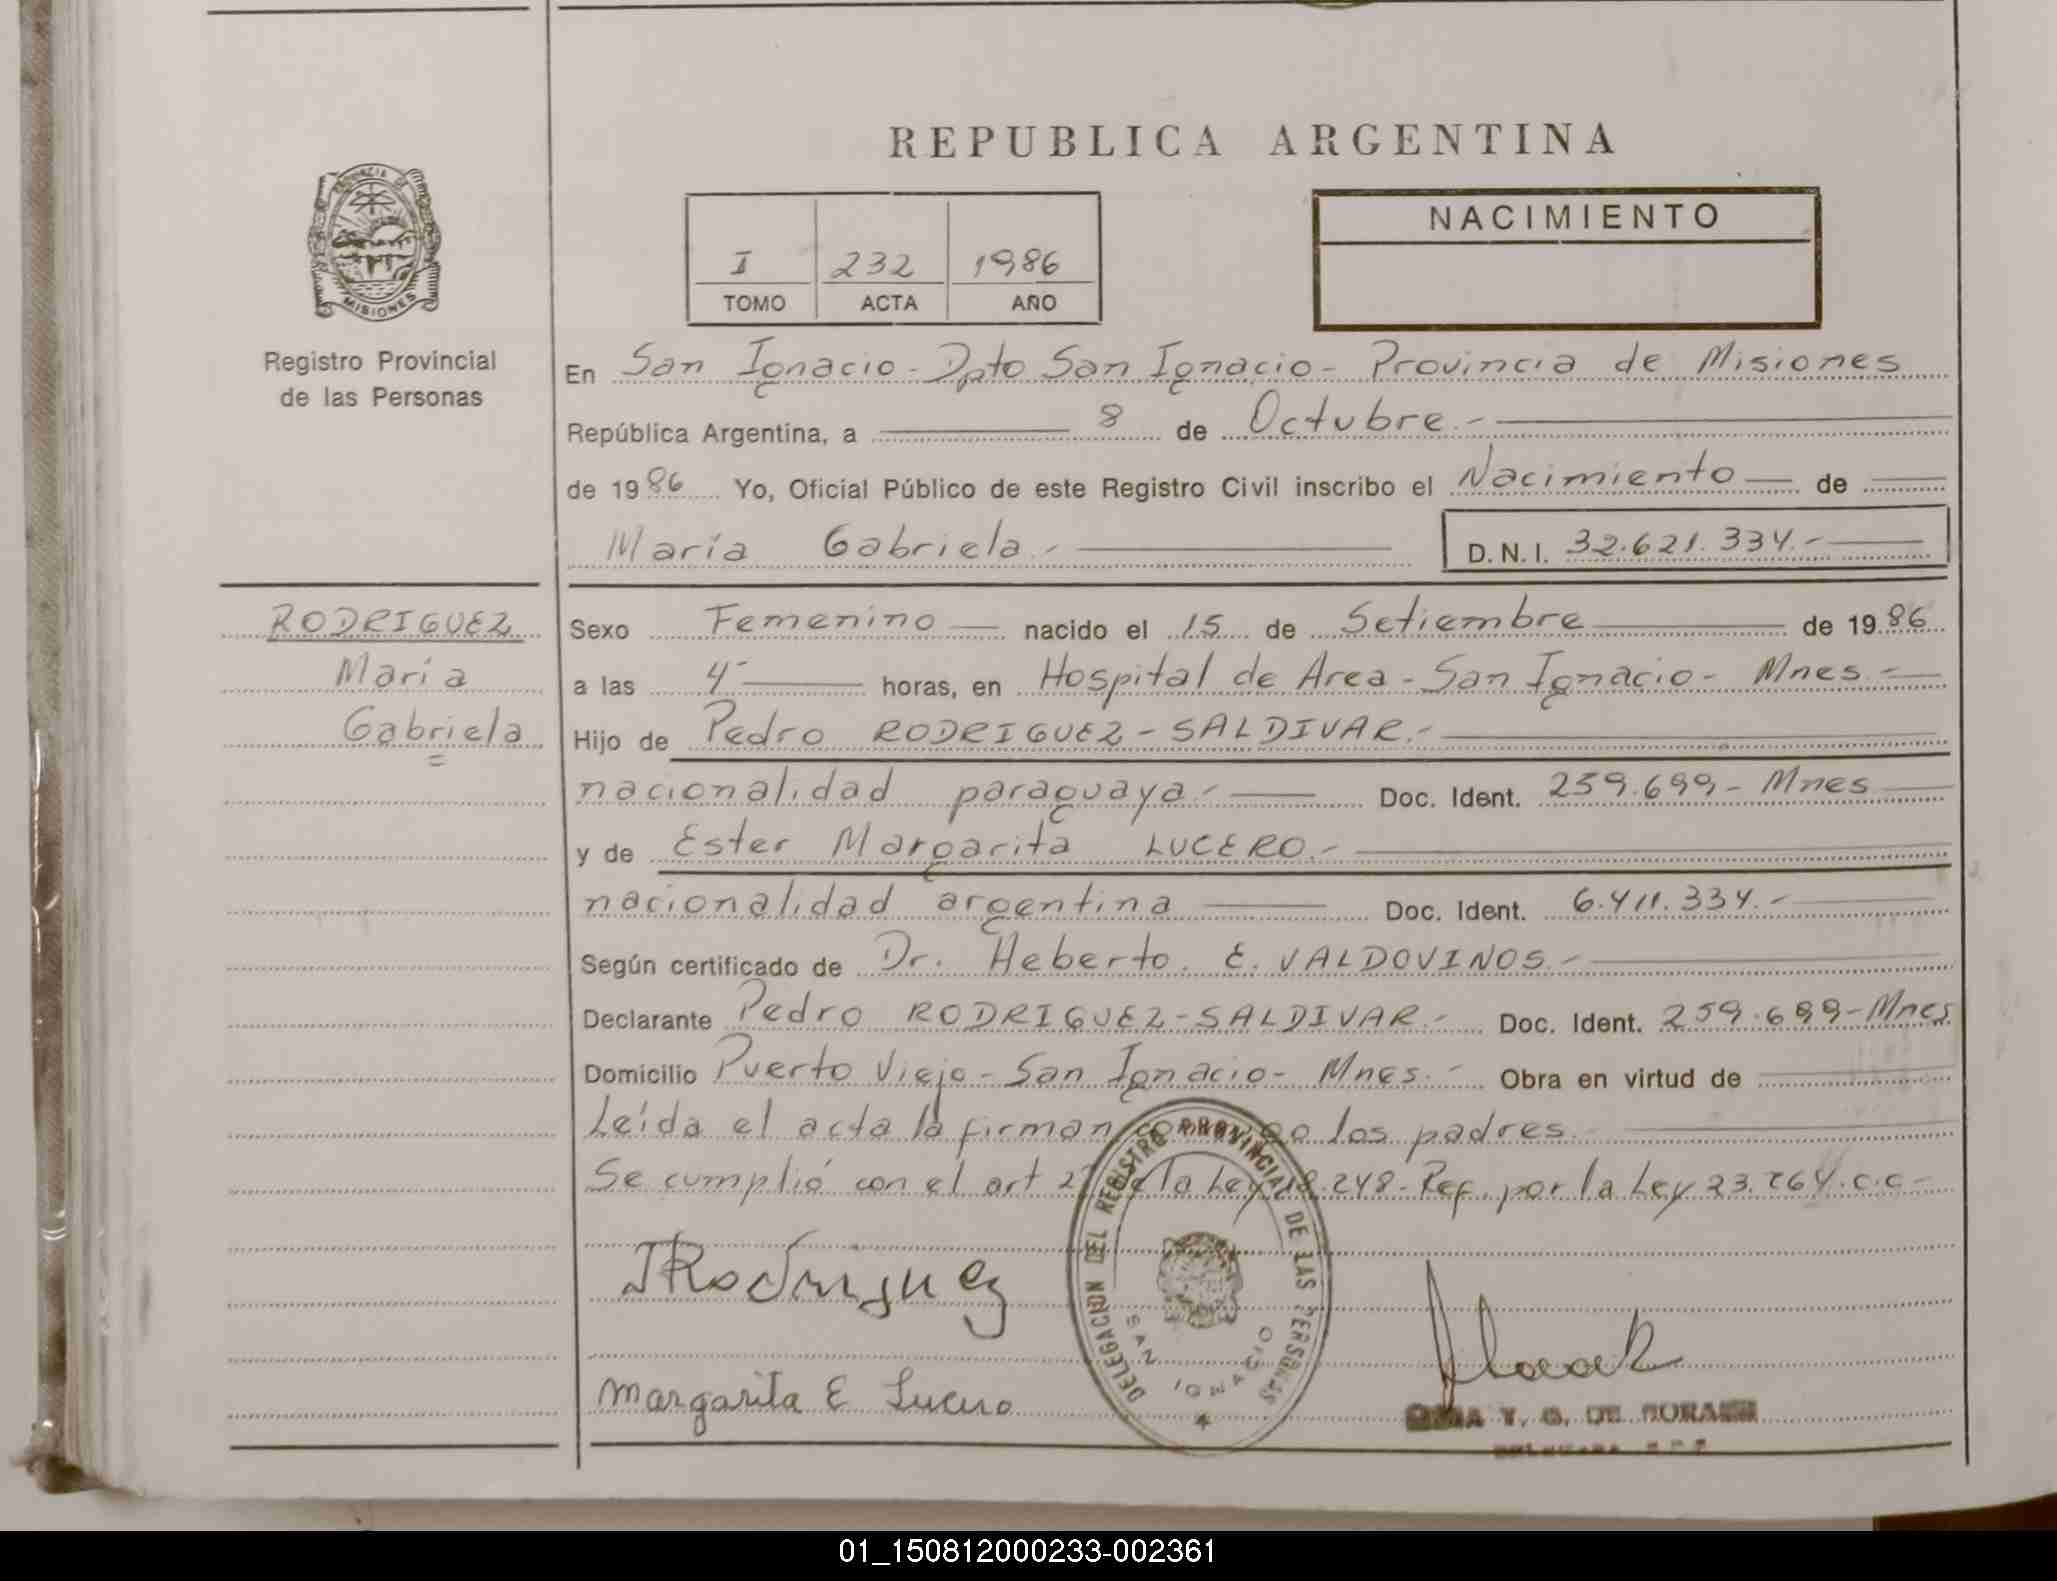 REPUBLICA ARGENTINA
PROVINCIA DE
MISIONES
Registro Provincial
de las Personas
I 232 1986
TOMO ACTA AÑO
NACIMIENTO
En San Ignacio - Dpto San Ignacio - Provincia de Misiones
República Argentina, a 8 de Octubre.-
de 1986 Yo, Oficial Público de este Registro Civil inscribo el Nacimiento de
María Gabriela.- D.N.I. 32.621.334.-
RODRIGUEZ
María
Gabriela
Sexo Femenino nacido el 15 de Setiembre de 1986
a las 4- horas, en Hospital de Area - San Ignacio - Mnes.-
Hijo de Pedro RODRIGUEZ-SALDIVAR.-
nacionalidad paraguaya.- Doc. Ident. 259.699.- Mnes
y de Ester Margarita LUCERO.-
nacionalidad argentina Doc. Ident. 6.411.334.-
Según certificado de Dr. Heberto E. VALDOVINOS.-
Declarante Pedro RODRIGUEZ-SALDIVAR.- Doc. Ident. 259.699-Mnes
Domicilio Puerto Viejo - San Ignacio - Mnes.- Obra en virtud de
Leída el acta la firman los padres.
Se cumplió con el art la Ley 18.248. Ref. por la Ley 23.264.c.c-
DELEGACION DEL REGISTRO PROVINCIAL DE LAS PERSONAS
SAN IGNACIO
Rodriguez
Margarita E Lucero
Y. G. DE
01_150812000233-002361